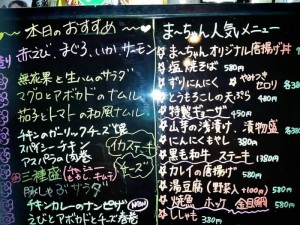 本日のおすすめ
赤えび、まぐろ、いか、サーモン
無花果と生ハムのサラダ
マグロとアボカドのナムル
茄子とトマトの和風ナムル
チキンのガーリックチーズ焼
スパイシーチキン
アスパラの肉巻
イカステーキ
チーズ
三種盛
豚しゃぶサラダ
チキンカレーのナンピザ
えびとアボカドとチーズ春巻
ま〜ちゃん人気メニュー
ま〜ちゃんオリジナル唐揚げ
塩焼そば 580円
ずりにんにく
やみつきセロリ
とうもろこしの天ぷら 440円
特製ギョーザ
山芋の浅漬け、漬物盛 380円
にんにくもやし 380円
黒毛和牛 ステーキ 1380円
カレイの唐揚げ 580円
湯豆腐(野菜入+100円) 580円
焼魚 ホッケ 金目鯛 580円
ししゃも 380円